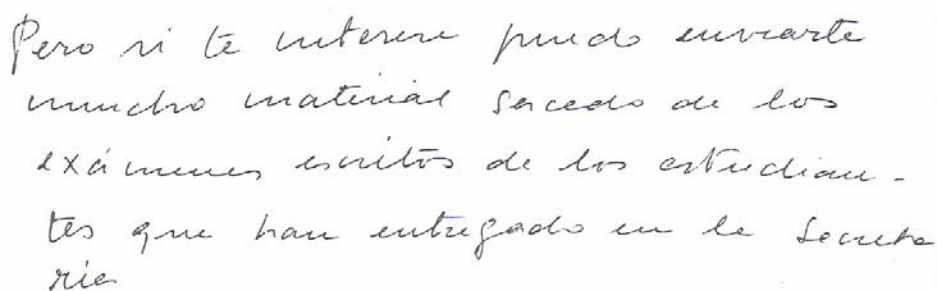 Pero si te interesa puedo enviarte
mucho material sacado de los
exámenes escritos de los estudian-
tes que han entregado en la Secreta
ria